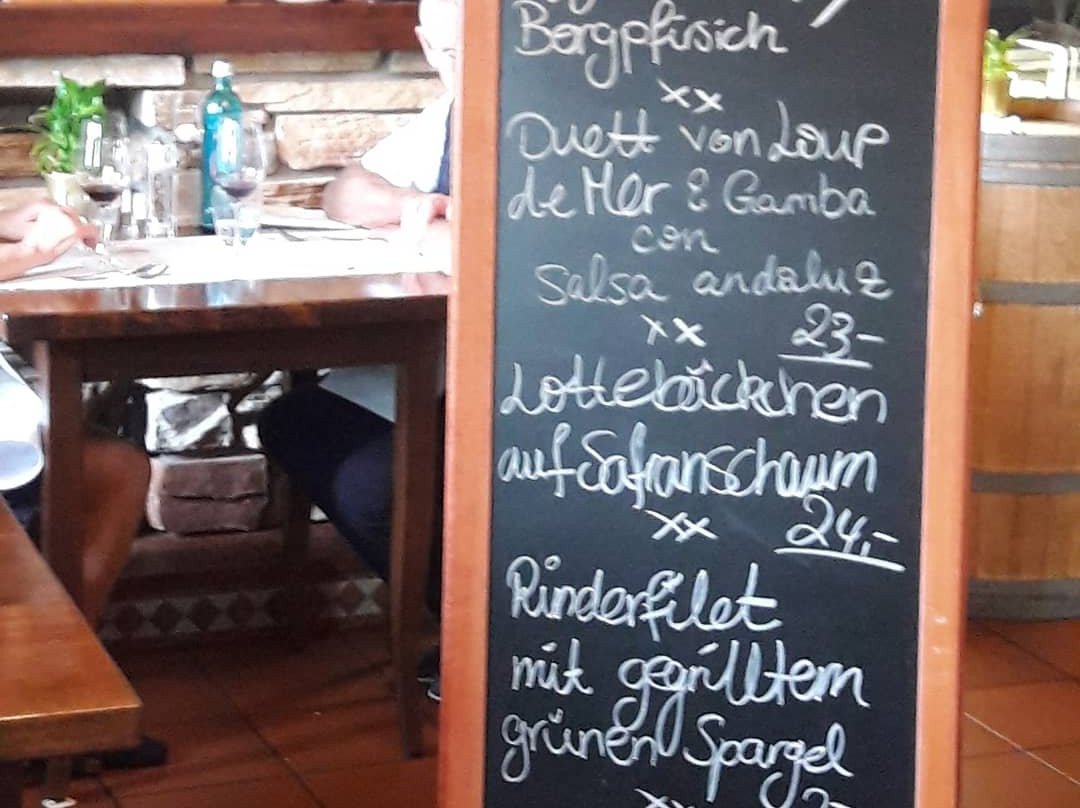 Bergpfirsich
xx
Duett von Loup
de Mer & Gamba
con
Salsa andaluz
xx 23-
Lottebäckchen
auf Safranschaum
xx 24,-
Rinderfilet
mit gegrilltem
grünen Spargel
xx